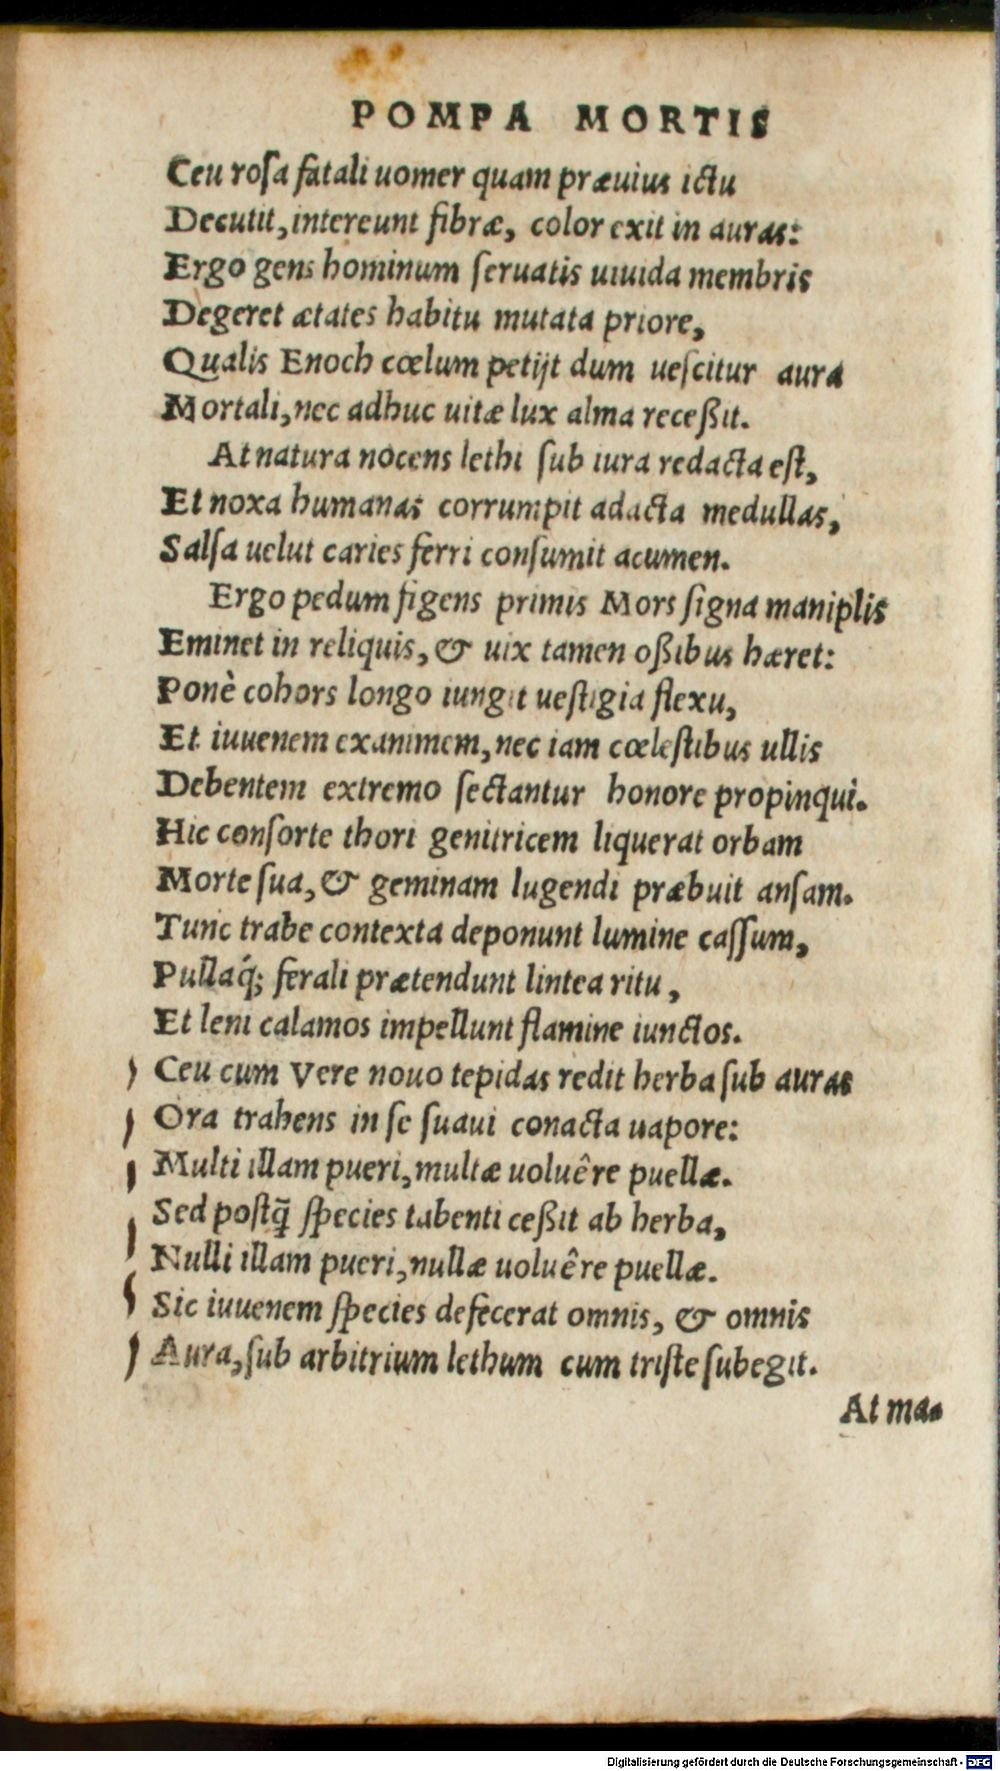 POMPA MORTIS
Ceu rosa fatali uomer quam præuius ictu
Decutit, intereunt fibræ, color exit in auras:
Ergo gens hominum seruatis uiuida membris
Degeret ætates habitu mutata priore,
Qualis Enoch cœlum petijt dum uescitur aura
Mortali, nec adhuc uitæ lux alma receßit.
At natura nocens lethi sub iura redacta est,
Et noxa humanas corrumpit adacta medullas,
Salsa uelut caries ferri consumit acumen.
Ergo pedum figens primis Mors signa maniplis
Eminet in reliquis, & uix tamen oßibus hæret:
Ponè cohors longo iungit uestigia flexu,
Et iuuenem exanimem, nec iam cœlestibus ullis
Debentem extremo sectantur honore propinqui.
Hic consorte thori genitricem liquerat orbam
Morte sua, & geminam lugendi præbuit ansam.
Tunc trabe contexta deponunt lumine cassum,
Pullaq́; ferali prætendunt lintea ritu,
Et leni calamos impellunt flamine iunctos.
Ceu cum Vere nouo tepidas redit herba sub auras
Ora trahens in se suaui conacta uapore:
Multi illam pueri, multæ uoluêre puellæ.
Sed postq̃ species tabenti ceßit ab herba,
Nulli illam pueri, nullæ uoluêre puellæ.
Sic iuuenem species defecerat omnis, & omnis
Aura, sub arbitrium lethum cum triste subegit.
At ma-
Digitalisierung gefördert durch die Deutsche Forschungsgemeinschaft - DFG